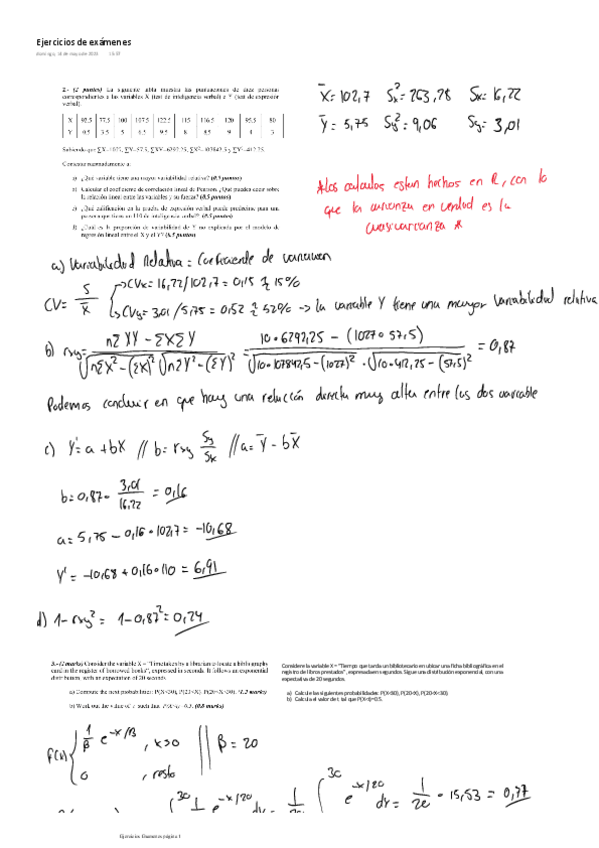 Ejercicios de exámenes
2.- (2 puntos) La siguiente tabla muestra las puntuaciones de diez personas
correspondientes a las variables X (test de inteligencia verbal) e Y (test de
verbal)
X 92.5 77.5 100 107.5 122.5 115 116.5 120 95.5 80
Contesta razonadamente a:
a) ¿Qué variable tiene una mayor variabilidad relativa? (0.5 puntos)
b) Calcular el coeficiente de correlación lineal de Pearson. ¿Qué puedes decir sobre
la relación lineal entre las variables y su fuerza? (0.5 puntos)
c) ¿Qué calificación en la prueba de expresión verbal puede predecirse para una
persona que tiene un 110 de inteligencia verbal? (0.5 puntos)
d) ¿Cuál es la proporción de variabilidad de Y no explicada por el modelo de
regresión lineal entre X y el Y? (0.5 puntos)
X̄ = 102,7 Sx² = 263,28 Sx = 16,22
Ȳ = 5,75 Sy² = 9,06 Sy = 3,01
*Los calculos estan hechos en R, con lo
que la varianza en verdad es la
cuasivarianza *
a) Variabilidad Relativa = Coeficiente de variacion
CV = S / X̄
CVx = 16,22/102,7 = 0,15 ≈ 15%
CVy = 3,01/5,75 = 0,52 ≈ 52% -> la variable Y tiene una mayor variabilidad relativa
b) rxy = nΣXY - ΣXΣY / √nΣX² - (ΣX)² √nΣY² - (ΣY)² = 10·6292,25 - (1027·57,5) / √10·107842,5 - (1027)² · √10·412,25 - (57,5)² = 0,87
Podemos concluir en que hay una relación directa muy alta entre las dos variable
c) Y' = a + bX // b = rxy Sy/Sx // a = Ȳ - bX̄
b = 0,87 · 3,01/16,22 = 0,16
a = 5,75 - 0,16·102,7 = -10,68
Y' = -10,68 + 0,16·110 = 6,91
d) 1 - rxy² = 1 - 0,87² = 0,24
3.- (2 marks) Consider the variable X = "Time taken by a librarian to locate a bibliography
card in the register of borrowed books", expressed in seconds. It follows an exponential
distribution, with an expectation of 20 seconds.
Considere la variable X = "Tiempo que tarda un bibliotecario en ubicar una ficha bibliográfica en el
registro de libros prestados", expresada en segundos. Sigue una distribución exponencial, con una
expectativa de 20 segundos.
a) Calcule las siguientes probabilidades: P(X<30), P(20<X), P(20<X<30)
b) Calcula el valor de t tal que P(X<t)=0.5.
f(x) { 1/β e^-x/β , x>0 || β = 20
0 , resto
∫ 30 1 e^-x/20 dx = 1 ∫ 30 e^-x/20 dx = 1/20 · 15,53 = 0,77
Ejercicios Examenes página 1